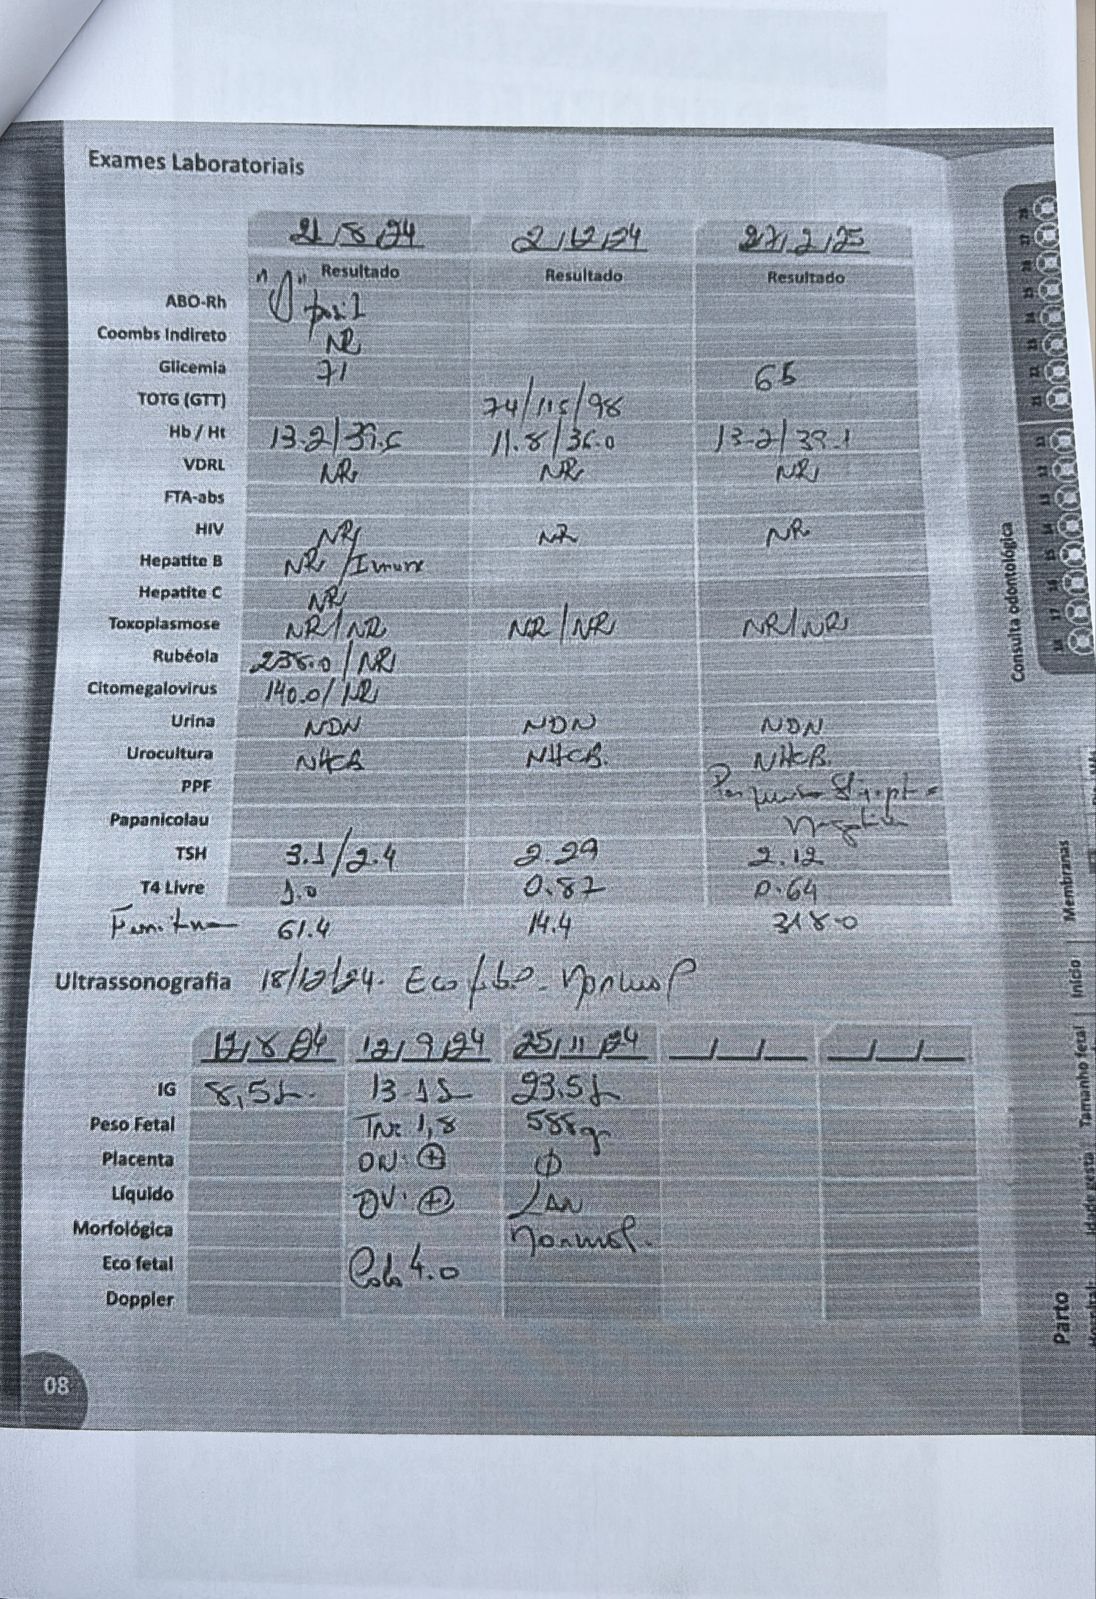 Exames Laboratoriais
21/8/24 2/12/24 27/2/25
Resultado Resultado Resultado
ABO-Rh "O"
Coombs Indireto NR
Glicemia 71 65
TOTG (GTT) 74/115/98
Hb / Ht 13.2/39.5 11.8/36.0 13.2/39.1
VDRL NR NR NR
FTA-abs
HIV NR NR NR
Hepatite B NR/Imune
Hepatite C NR
Toxoplasmose NR/NR NR/NR NR/NR
Rubéola /NR
Citomegalovirus 140.0/NR
Urina NDN NDN NDN
Urocultura NHCB NHCB. NHCB.
PPF
Papanicolau Negativa
TSH 3.1/2.4 2.29 2.12
T4 Livre 1.0 0.87 0.64
61.4 14.4
Ultrassonografia 18/12/24. Eco fetal. Normal
12/9/24 25/11/24 _/_/_ _/_/_
IG 8,5s. 13.1s 23,5s
Peso Fetal TN: 1,8 588gr
Placenta ON: +
Líquido DV: + LAN
Morfológica Normal.
Eco fetal Colo 4.0
Doppler
08
Consulta odontológica
Membranas
Início
Tamanho fetal
Parto